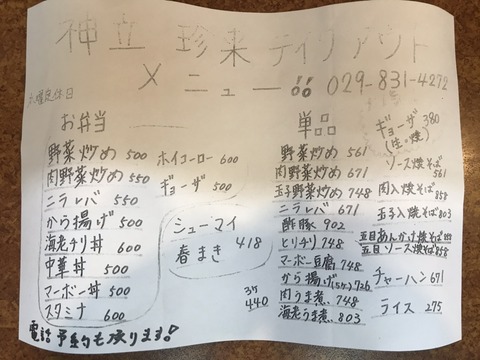 神立 珍来 テイクアウト
メニュー!!
029-831-4272
火曜定休日
お弁当
野菜炒め 500
肉野菜炒め 550
ニラレバ 550
から揚げ 500
海老チリ丼 600
中華丼 500
マーボー丼 500
スタミナ 600
ホイコーロー 600
ギョーザ 500
シューマイ
春まき 418
3ケ
440
単品
野菜炒め 561
肉野菜炒め 671
玉子野菜炒め 748
ニラレバ 671
酢豚 902
とりチリ 748
マーボー豆腐 748
から揚げ(5ケ) 726
肉うま煮 748
海老うま煮 803
ギョーザ 380
(生・焼)
ソース焼そば
561
肉入焼そば 858
玉子入焼そば 803
五目あんかけ焼そば
五目ソース焼そば 858
チャーハン 671
ライス 275
電話予約も承ります!